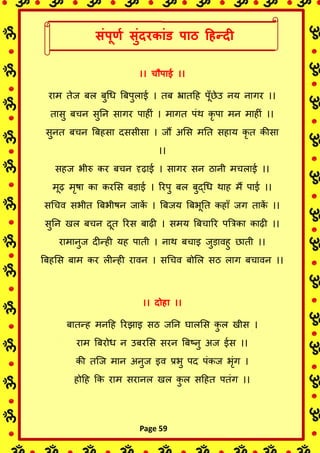 संपूर्ण सुंदरकांड पाठ हिन्दी
।। चौपाई ।।
राम तेज बल बुधि बिपुलाई । तब भ्रातहि पूँछेउ नय नागर ।।
तासु बचन सुनि सागर पाहीं । मागत पंथ कृपा मन माहीं ।।
सुनत बचन बिहसा दससीसा । जौं असि मति सहाय कृत कीसा
।।
सहज भीरु कर बचन दृढ़ाई । सागर सन ठानी मचलाई ।।
मूढ़ मृषा का करसि बड़ाई । रिपु बल बुद्धि थाह मैं पाई ।।
सचिव सभीत बिभीषन जाकें । बिजय बिभूति कहाँ जग ताकें ।।
सुनि खल बचन दूत रिस बाढ़ी । समय बिचारि पत्रिका काढ़ी ।।
रामानुज दीन्ही यह पाती । नाथ बचाइ जुड़ावहु छाती ।।
बिहसि बाम कर लीन्ही रावन । सचिव बोलि सठ लाग बचावन ।।
।। दोहा ।।
बातन्ह मनहि रिझाइ सठ जनि घालसि कुल खीस ।
राम बिरोध न उबरसि सरन बिष्नु अज ईस ।।
की तजि मान अनुज इव प्रभु पद पंकज भृंग ।
होहि कि राम सरानल खल कुल सहित पतंग ।।
Page 59